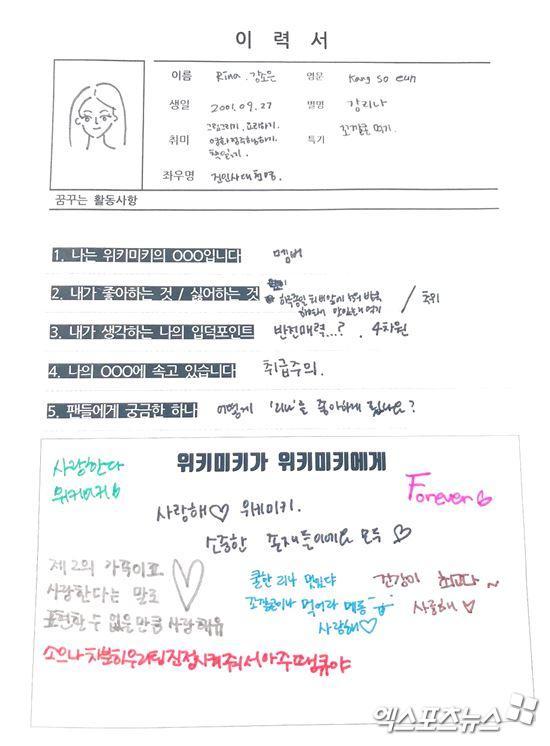 이 력 서
이름 Rina. 강소은 영문 Kang so eun
생일 2001.09.27 별명 강리나
취미 그림그리기, 요리하기, 특기 꼬깔콘 먹기.
영화정주행하기.
책읽기.
좌우명 진인사대천명.
꿈꾸는 활동사항
1. 나는 위키미키의 OOO입니다 멤버
2. 내가 좋아하는 것 / 싫어하는 것 하루종일 티비앞에 / 추위
맛있는거 먹기
3. 내가 생각하는 나의 입덕포인트 반전매력...? . 4차원
4. 나의 OOO에 속고 있습니다 취급주의.
5. 팬들에게 궁금한 하나 어떻게 '리나'를 좋아하게 됐나요?
위키미키가 위키미키에게
사랑한다
위키미키
Forever
사랑해♡ 위키미키.
소중한 존재들이에요 모두 ♡
제 2의 가족이고
사랑한다는 말로
표현할 수 없을만큼 사랑해유
쿨한 리나 멋있다
꼬깔콘이나 먹어라 메롱
사랑해♡
건강이 최고다~
사랑해♡
소으나 차분히 우리팀 진정시켜줘서 아주 땡큐야
엑스포츠뉴스